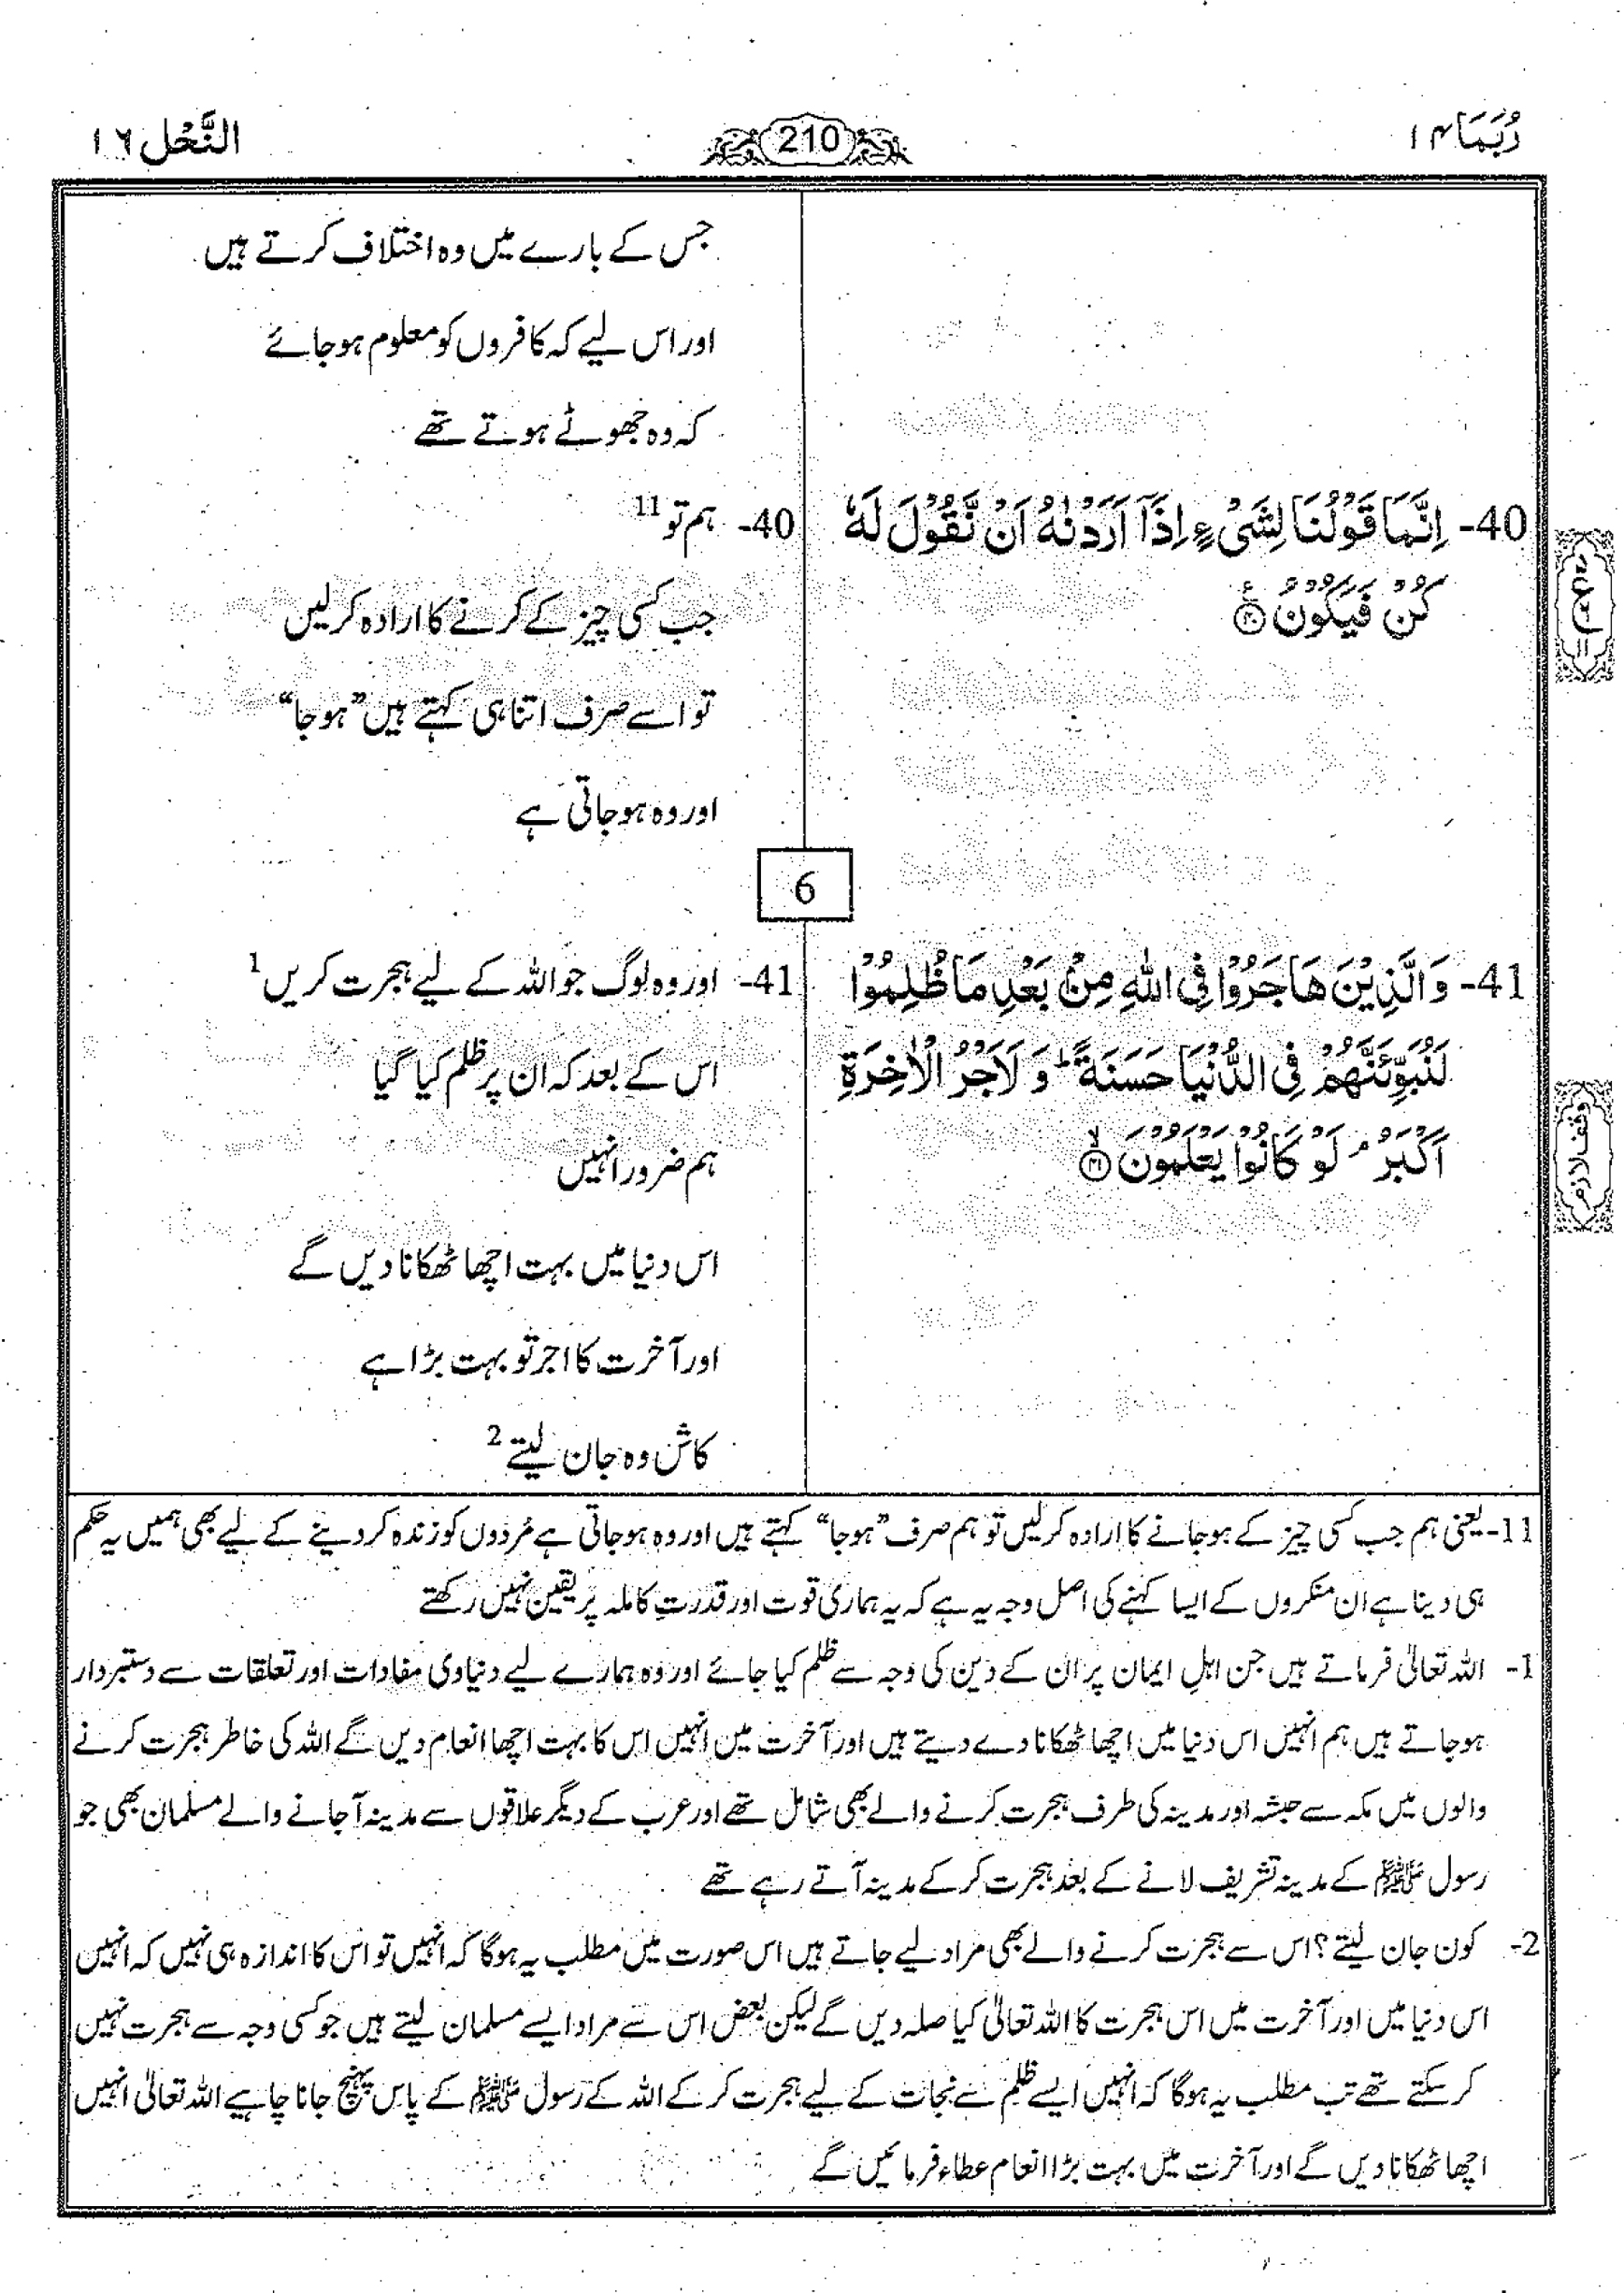 رُبَمَا ۱۴
210
النَّحْل ۱٦
جس کے بارے میں وہ اختلاف کرتے ہیں
اور اس لیے کہ کافروں کو معلوم ہو جائے
کہ وہ جھوٹے ہوتے تھے
40- اِنَّمَا قَوْلُنَا لِشَیْءٍ اِذَاۤ اَرَدْنٰهُ اَنْ نَّقُوْلَ لَهٗ
كُنْ فَيَكُوْنُ ۴۰
40- ہم تو 11
جب کسی چیز کے کرنے کا ارادہ کر لیں
تو اسے صرف اتنا ہی کہتے ہیں ”ہو جا“
اور وہ ہو جاتی ہے
6
41- وَالَّذِيْنَ هَاجَرُوْا فِی اللّٰهِ مِنْۢ بَعْدِ مَا ظُلِمُوْا
لَنُبَوِّئَنَّهُمْ فِی الدُّنْيَا حَسَنَةً ؕ وَ لَاَجْرُ الْاٰخِرَةِ
اَكْبَرُ ۘ لَوْ كَانُوْا يَعْلَمُوْنَ ۴۱
وقف لازم
41- اور وہ لوگ جو اللہ کے لیے ہجرت کریں 1
اس کے بعد کہ ان پر ظلم کیا گیا
ہم ضرور انہیں
اس دنیا میں بہت اچھا ٹھکانا دیں گے
اور آخرت کا اجر تو بہت بڑا ہے
کاش وہ جان لیتے 2
11- یعنی ہم جب کسی چیز کے ہو جانے کا ارادہ کر لیں تو ہم صرف ”ہو جا“ کہتے ہیں اور وہ ہو جاتی ہے مُردوں کو زندہ کر دینے کے لیے بھی ہمیں یہ حکم
ہی دینا ہے ان منکروں کے ایسا کہنے کی اصل وجہ یہ ہے کہ یہ ہماری قوت اور قدرتِ کاملہ پر یقین نہیں رکھتے
1- اللہ تعالیٰ فرماتے ہیں جن اہلِ ایمان پر ان کے دین کی وجہ سے ظلم کیا جائے اور وہ ہمارے لیے دنیاوی مفادات اور تعلقات سے دستبردار
ہو جاتے ہیں ہم انہیں اس دنیا میں اچھا ٹھکانا دے دیتے ہیں اور آخرت میں انہیں اس کا بہت اچھا انعام دیں گے اللہ کی خاطر ہجرت کرنے
والوں میں مکہ سے حبشہ اور مدینہ کی طرف ہجرت کرنے والے بھی شامل تھے اور عرب کے دیگر علاقوں سے مدینہ آ جانے والے مسلمان بھی جو
رسول ﷺ کے مدینہ تشریف لانے کے بعد ہجرت کر کے مدینہ آتے رہے تھے
2- کون جان لیتے؟ اس سے ہجرت کرنے والے بھی مراد لیے جاتے ہیں اس صورت میں مطلب یہ ہو گا کہ انہیں تو اس کا اندازہ ہی نہیں کہ انہیں
اس دنیا میں اور آخرت میں اس ہجرت کا اللہ تعالیٰ کیا صلہ دیں گے لیکن بعض اس سے مراد ایسے مسلمان لیتے ہیں جو کسی وجہ سے ہجرت نہیں
کر سکتے تھے تب مطلب یہ ہو گا کہ انہیں ایسے ظلم سے نجات کے لیے ہجرت کر کے اللہ کے رسول ﷺ کے پاس پہنچ جانا چاہیے اللہ تعالیٰ انہیں
اچھا ٹھکانا دیں گے اور آخرت میں بہت بڑا انعام عطاء فرمائیں گے